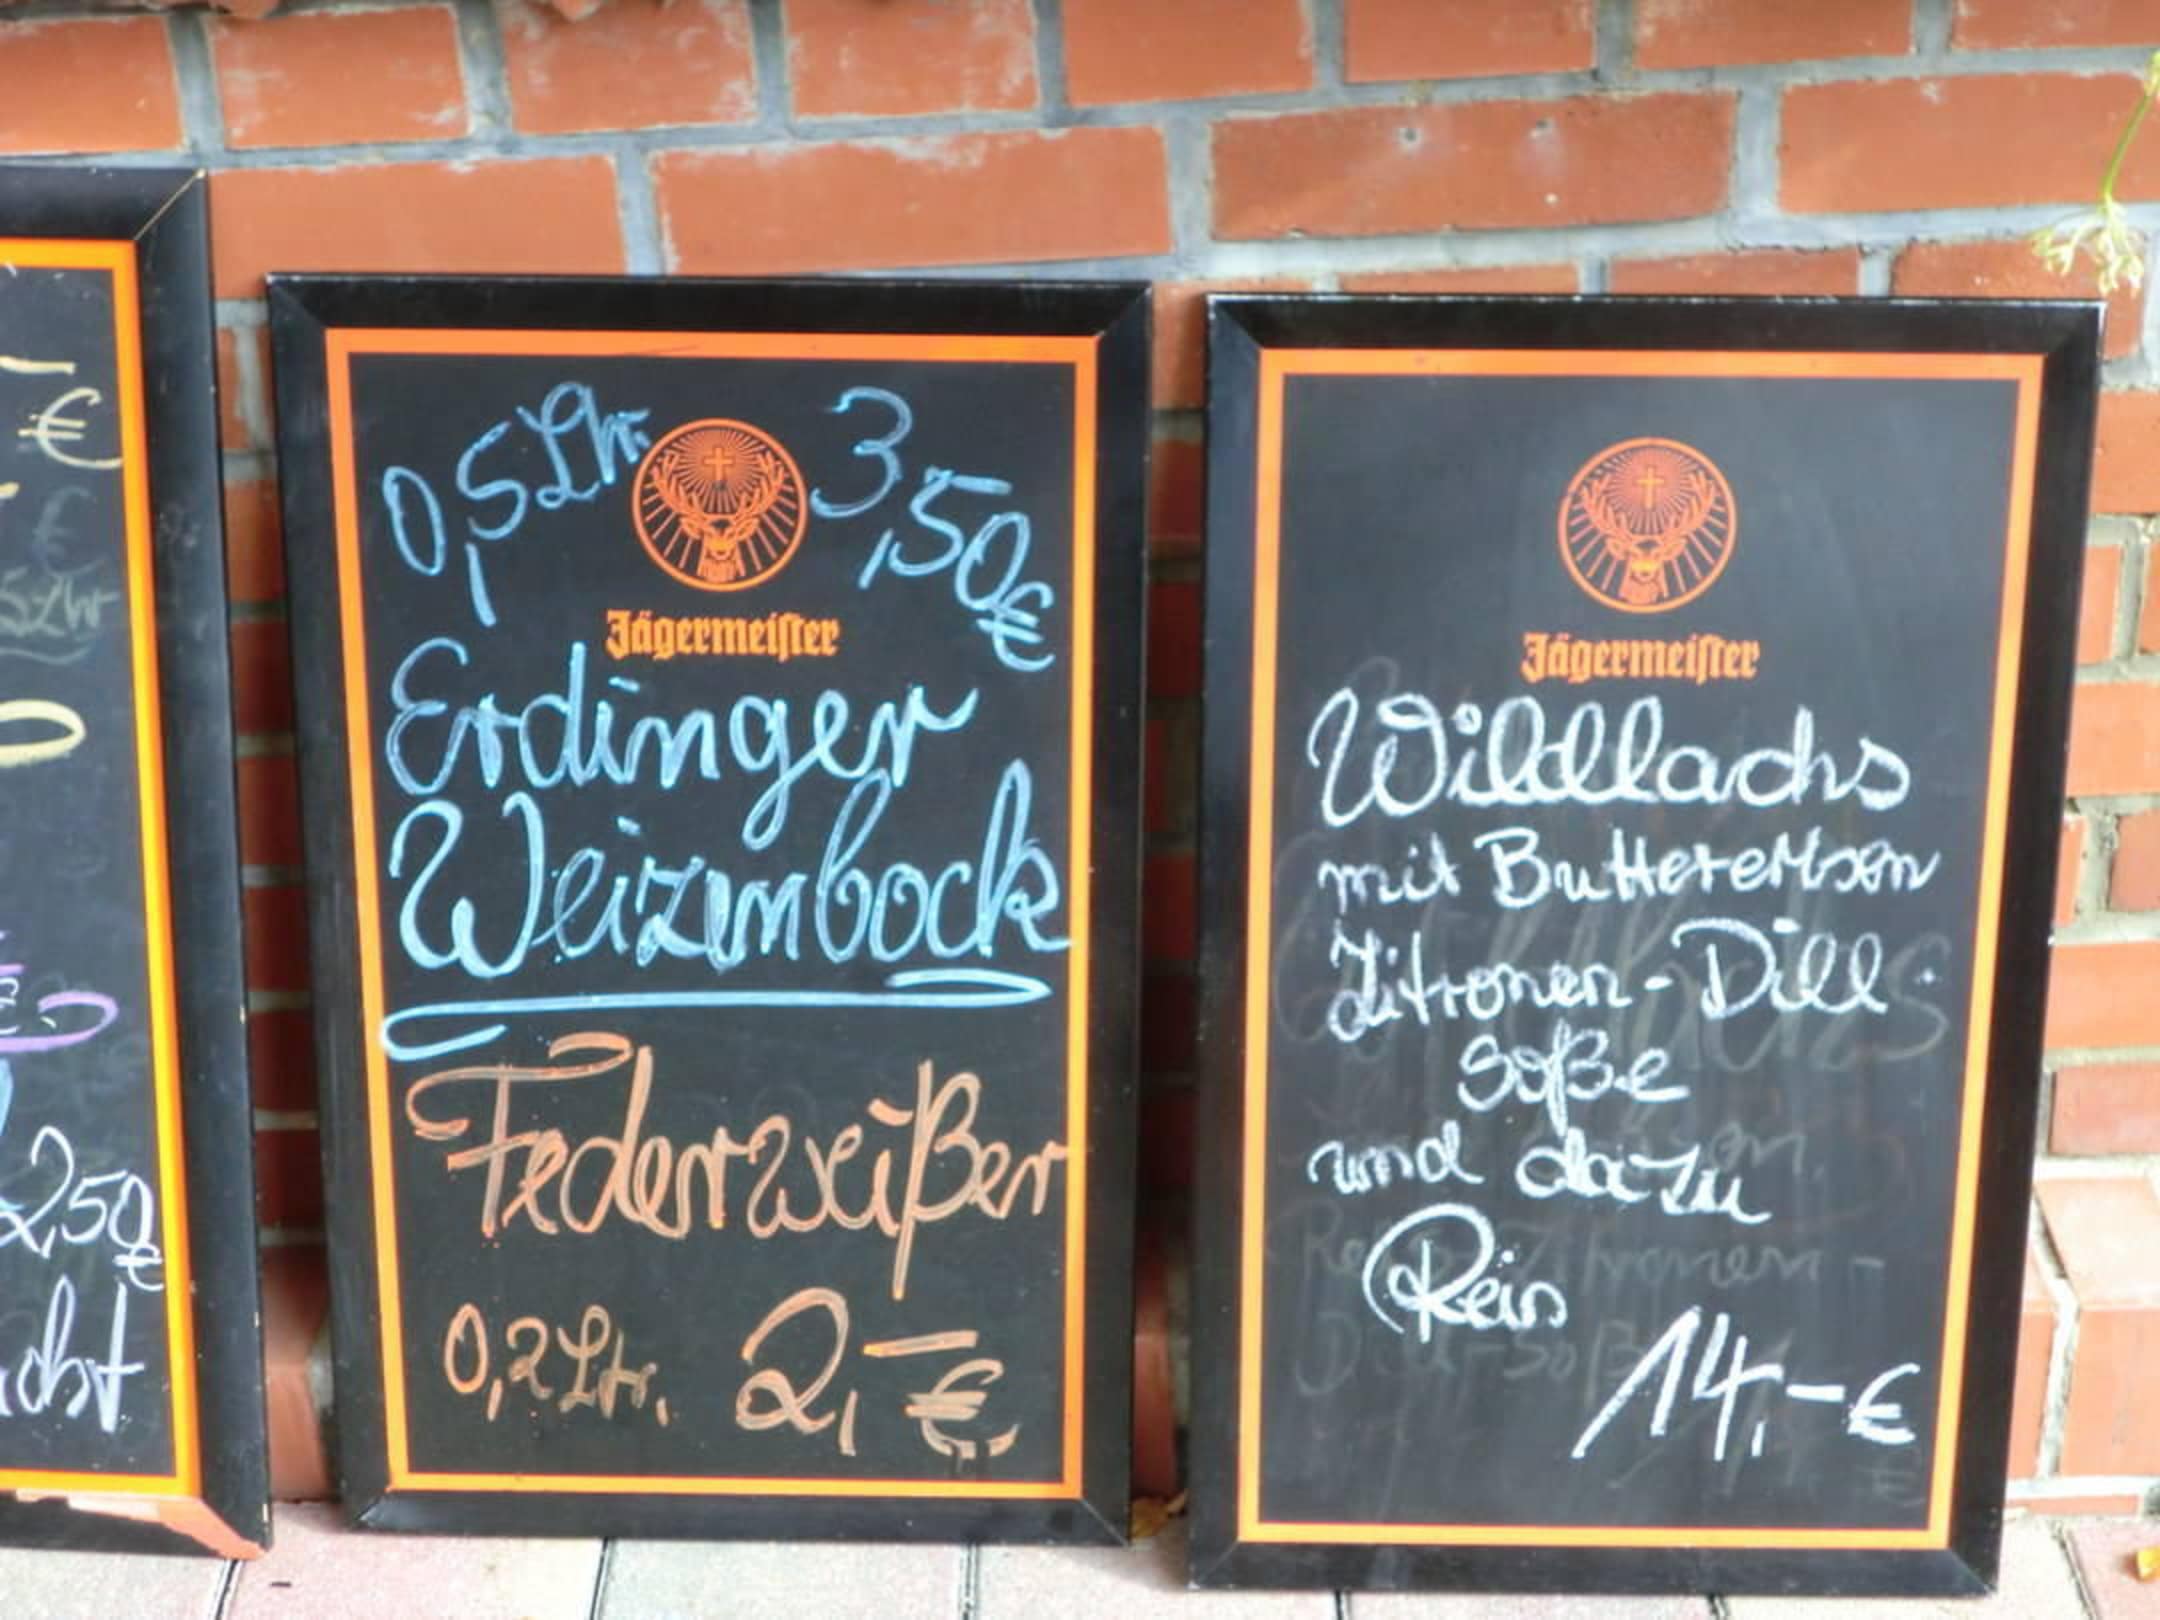 €
€
5 Ltr
250
€
0,5 Ltr. 3,50 €
Jägermeister
Erdinger
Weizenbock
Federweißer
0,2 Ltr. 2,- €
Jägermeister
Wildlachs
mit Buttererbsen
Zitronen-Dill
Soße
und dazu
Reis
14,- €